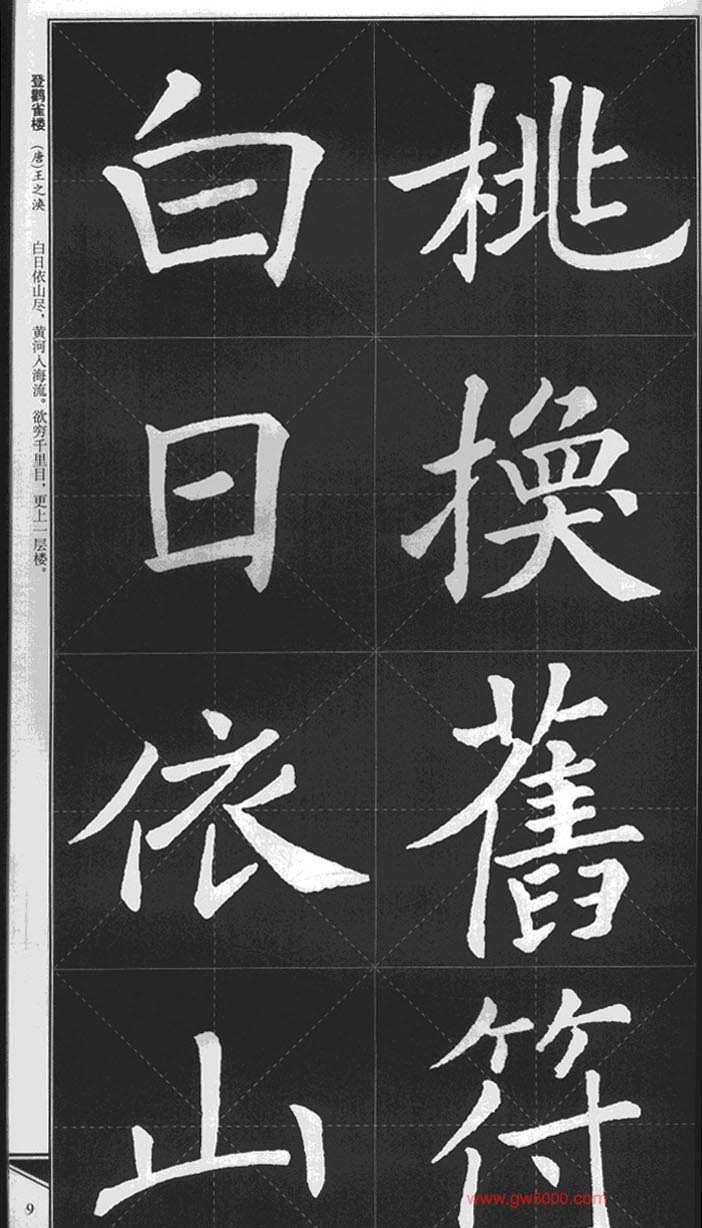 桃换舊符
白日依山
登鹳雀楼 (唐)王之涣 白日依山尽，黄河入海流。欲穷千里目，更上一层楼。
9
www.gw5000.com